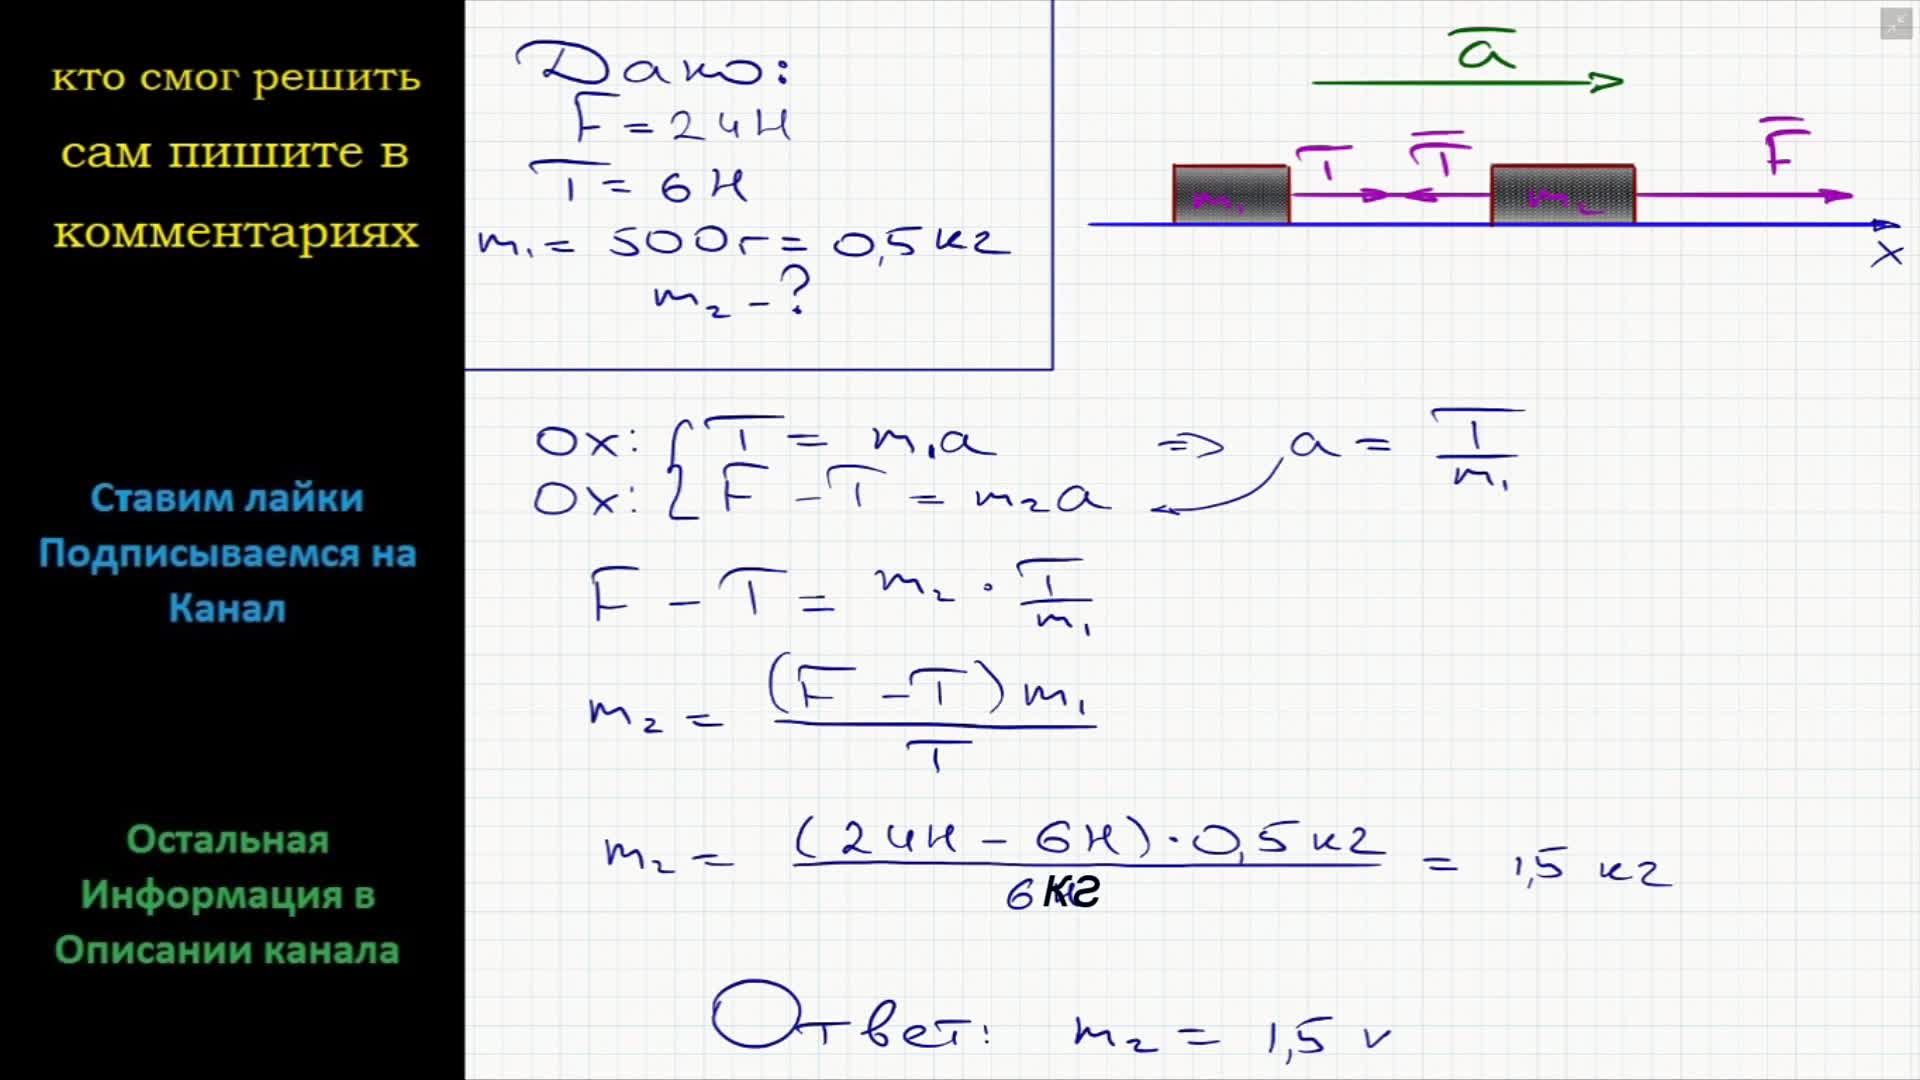 кто смог решить
сам пишите в
комментариях
Ставим лайки
Подписываемся на
Канал
Остальная
Информация в
Описании канала
Дано:
F = 24Н
T = 6Н
m₁ = 500г = 0,5кг
m₂ - ?
a
T T F
m₁ m₂
x
Ox: { T = m₁a => a = T/m₁
Ox: { F - T = m₂a
F - T = m₂ · T/m₁
m₂ = (F - T)m₁/T
m₂ = (24Н - 6Н)·0,5кг/6 кг = 1,5 кг
Ответ: m₂ = 1,5